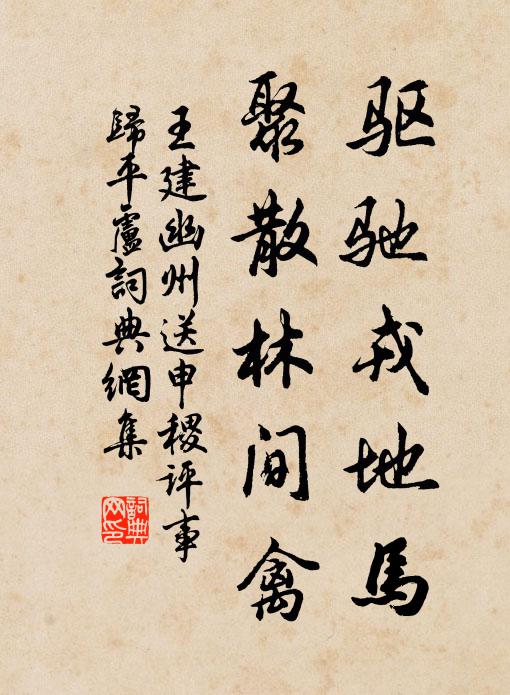 驱驰戎地馬
聚散林间禽
王建幽州送申稷评事
歸平盧詞典網集
詞典网印